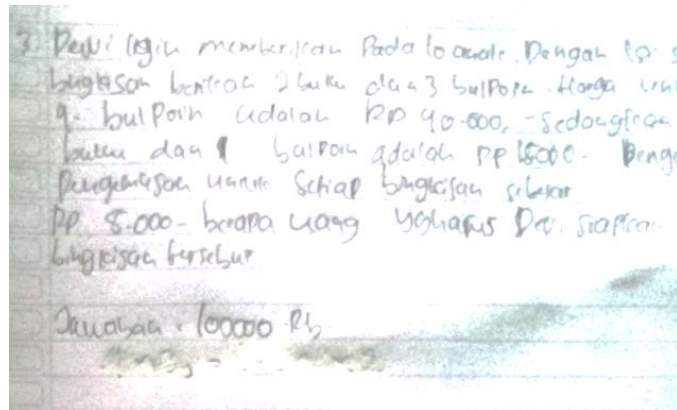 3 Dewi ingin memberikan Pada 10 anak. Dengan 10
bingkisan berisah 2 buku dan 3 bulPoin. Harga
9. bulPoin adalah RP 40.000, - Sedangkan
buku dan 1 bulPoin adalah RP 15000 -
Pengemasan untuk Setiap bingkisan sebesar
RP 8.000 - berapa uang yg harus Dewi siapkan
bingkisan tersebut
Jawaban : 100000 Rb